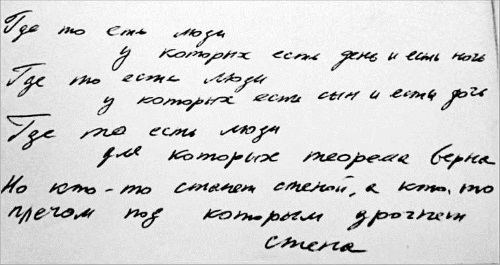 Где то есть люди
у которых есть день и есть ночь
Где то есть люди
у которых есть сын и есть дочь
Где то есть люди
для которых теорема верна
Но кто-то станет стеной, а кто-то
плечом под которым дрогнет
стена